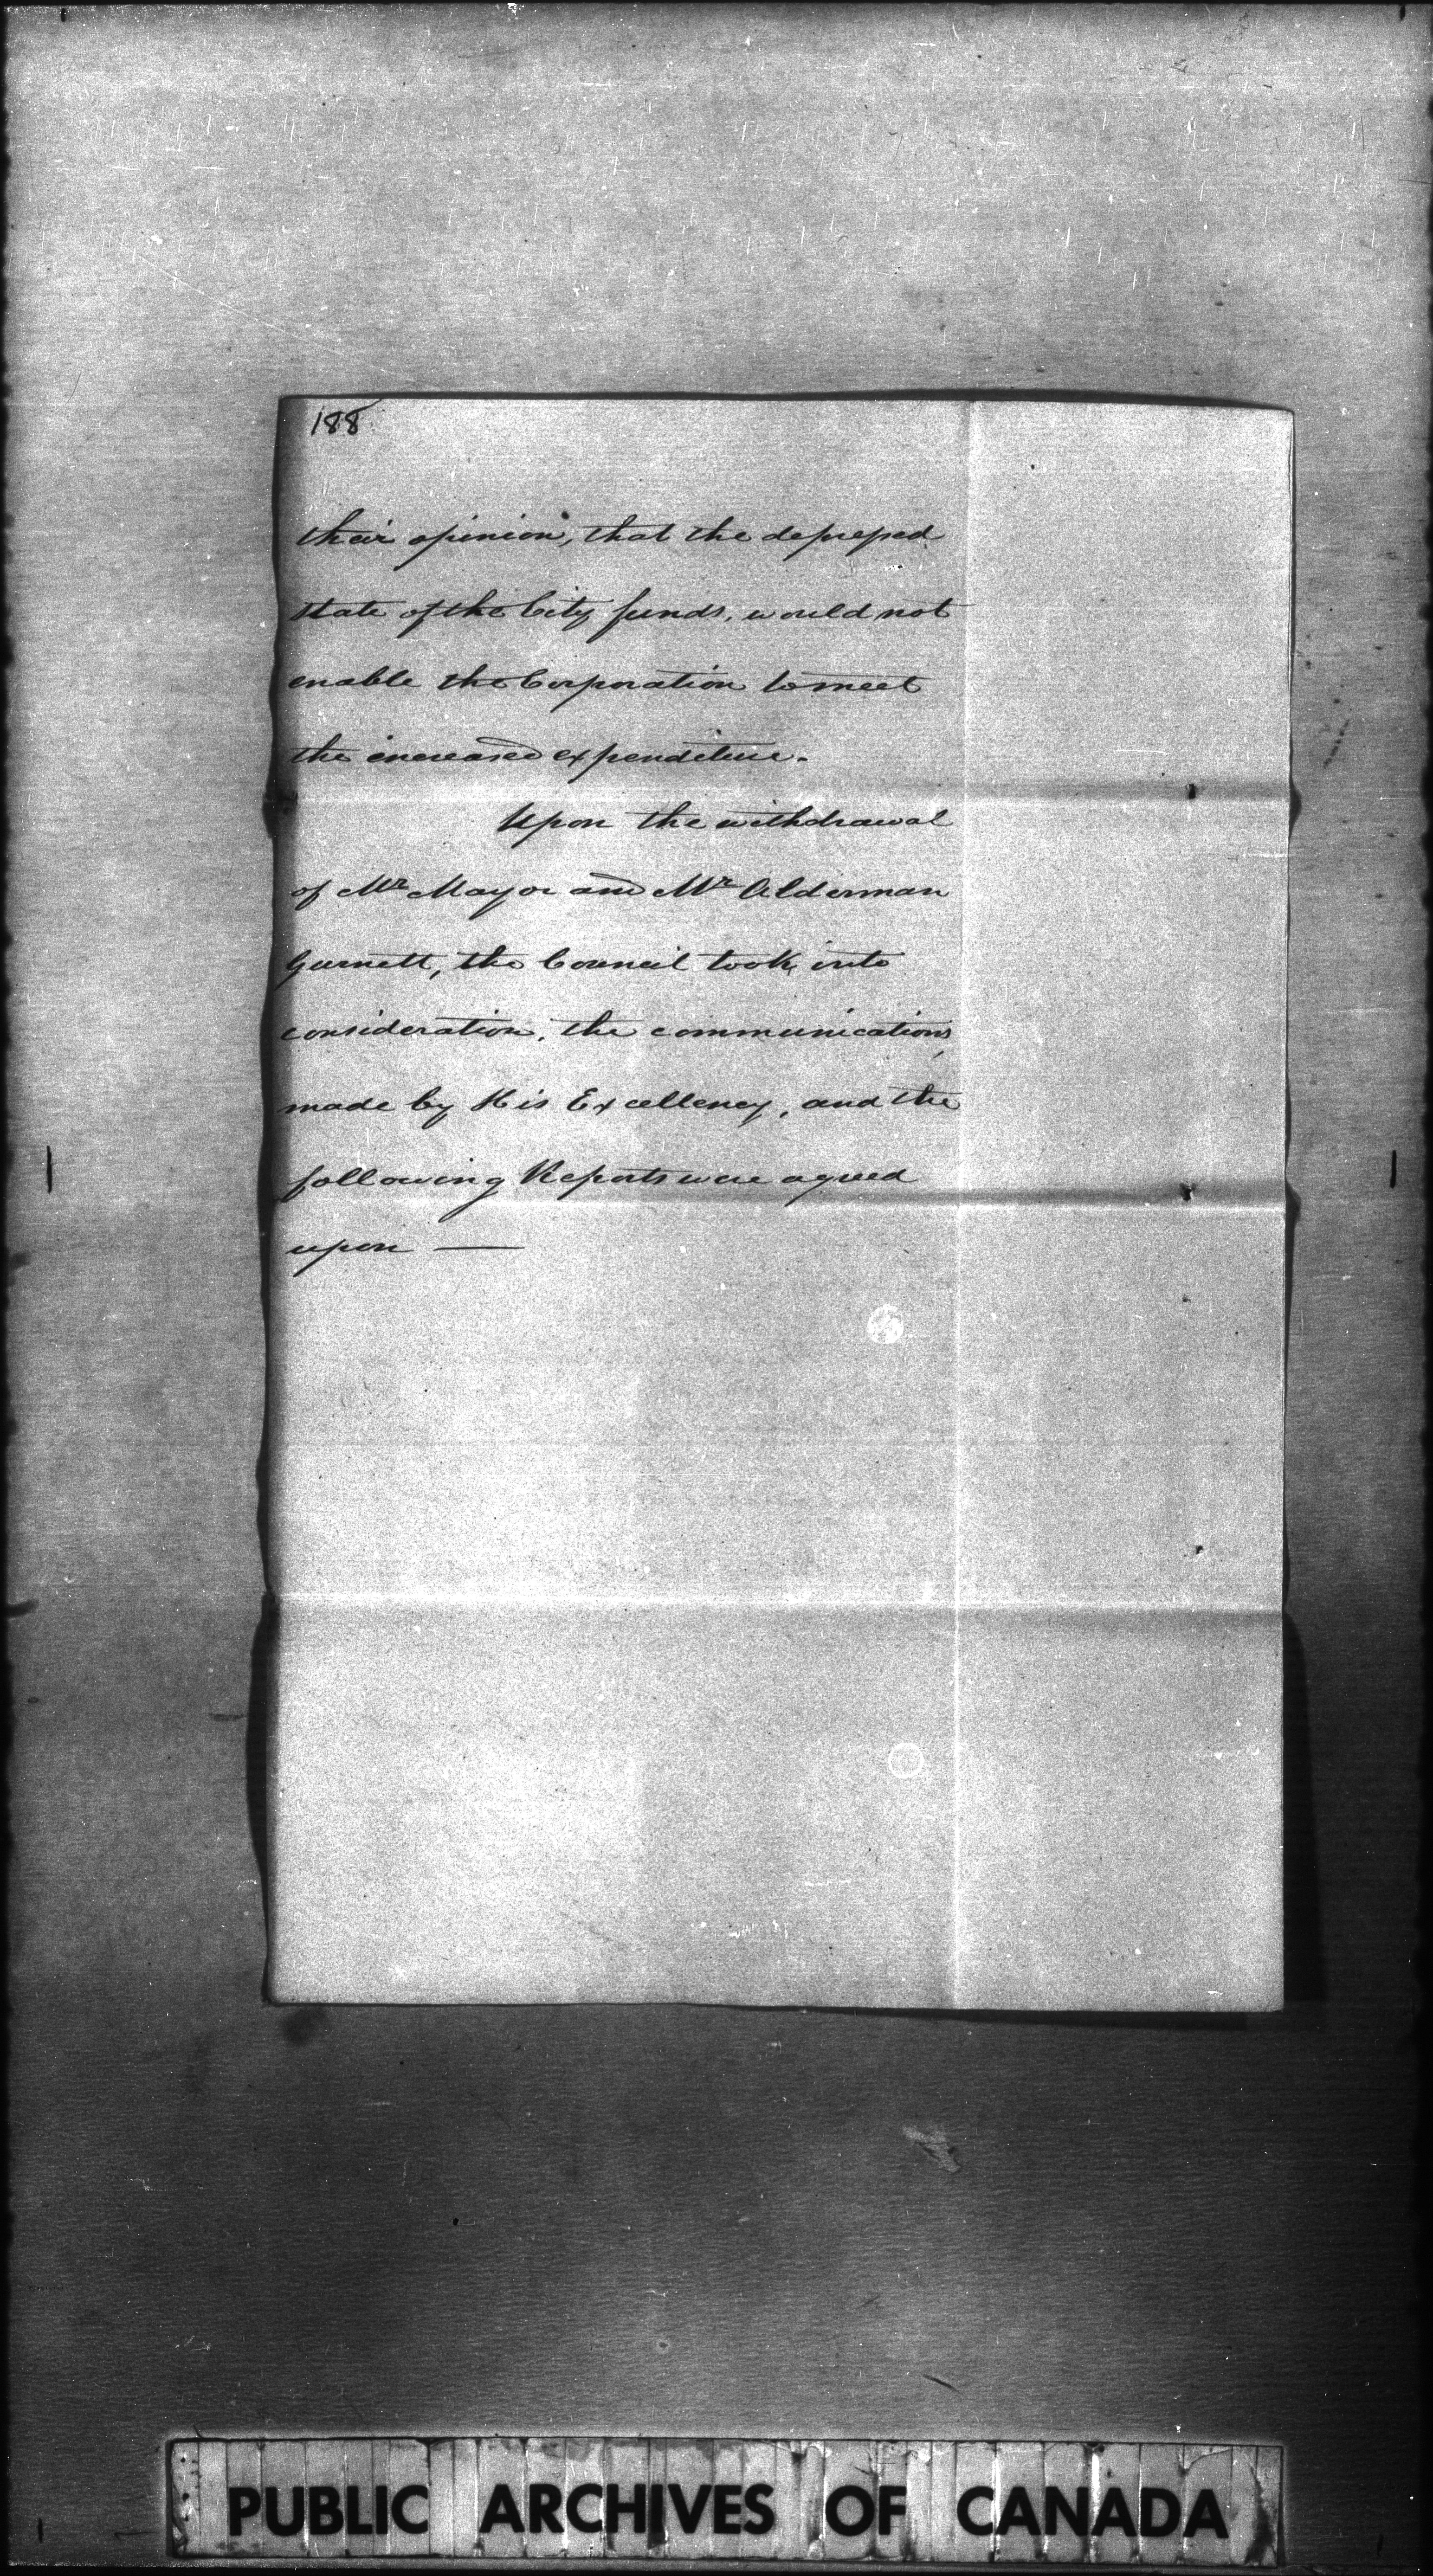 188
their opinion, that the depressed
state of the City funds, would not
enable the Corporation to meet
the increased expenditure.
Upon the withdrawal
of Mr Mayor and Mr Alderman
Gurnett, the Council took into
consideration, the communications,
made by His Excellency, and the
following Reports were agreed
upon —
PUBLIC ARCHIVES OF CANADA